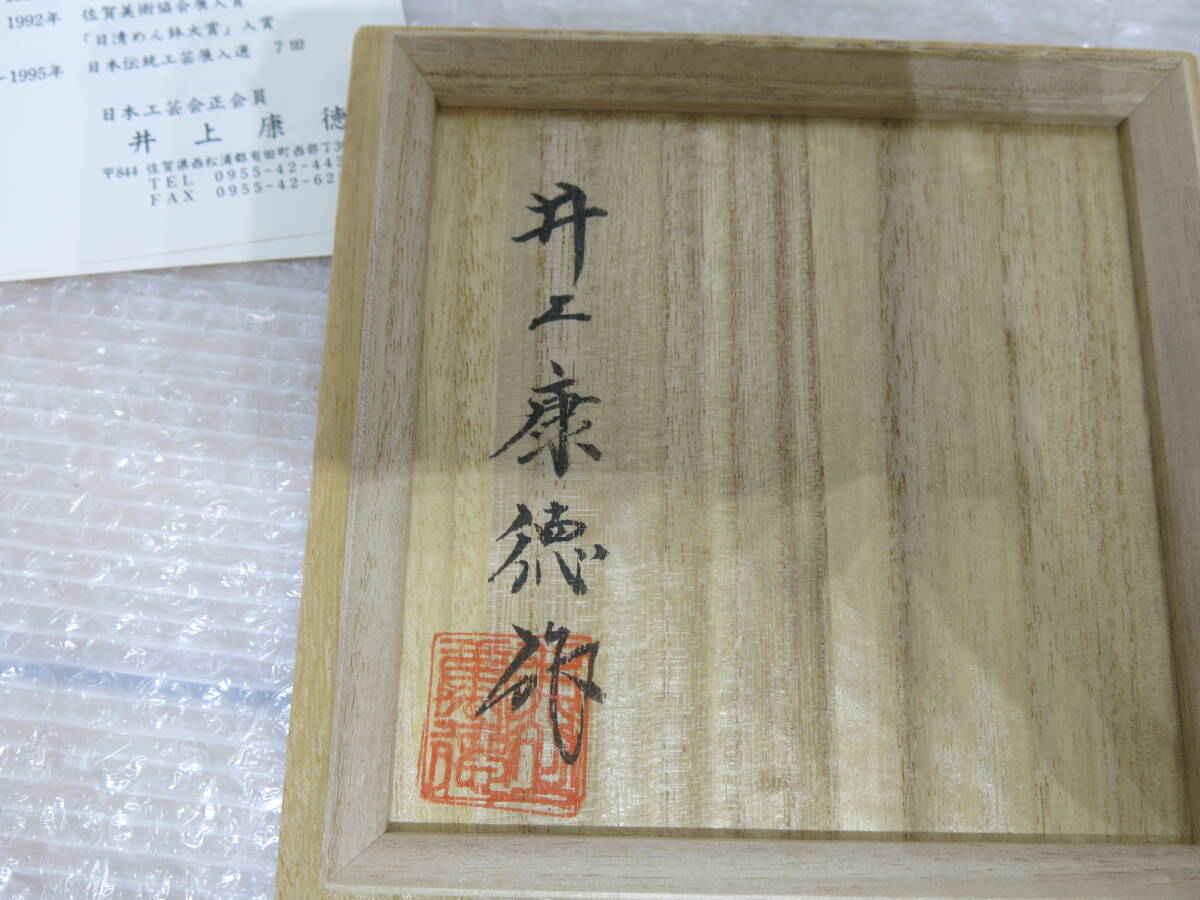 1992年 佐賀美術協会展入賞
「日清めん鉢大賞」入賞
-1995年 日本伝統工芸展入選 7回
日本工芸会正会員
井上康徳
〒844 佐賀県西松浦郡有田町西部丁
TEL 0955-42-443
FAX 0955-42-62
井上康徳作